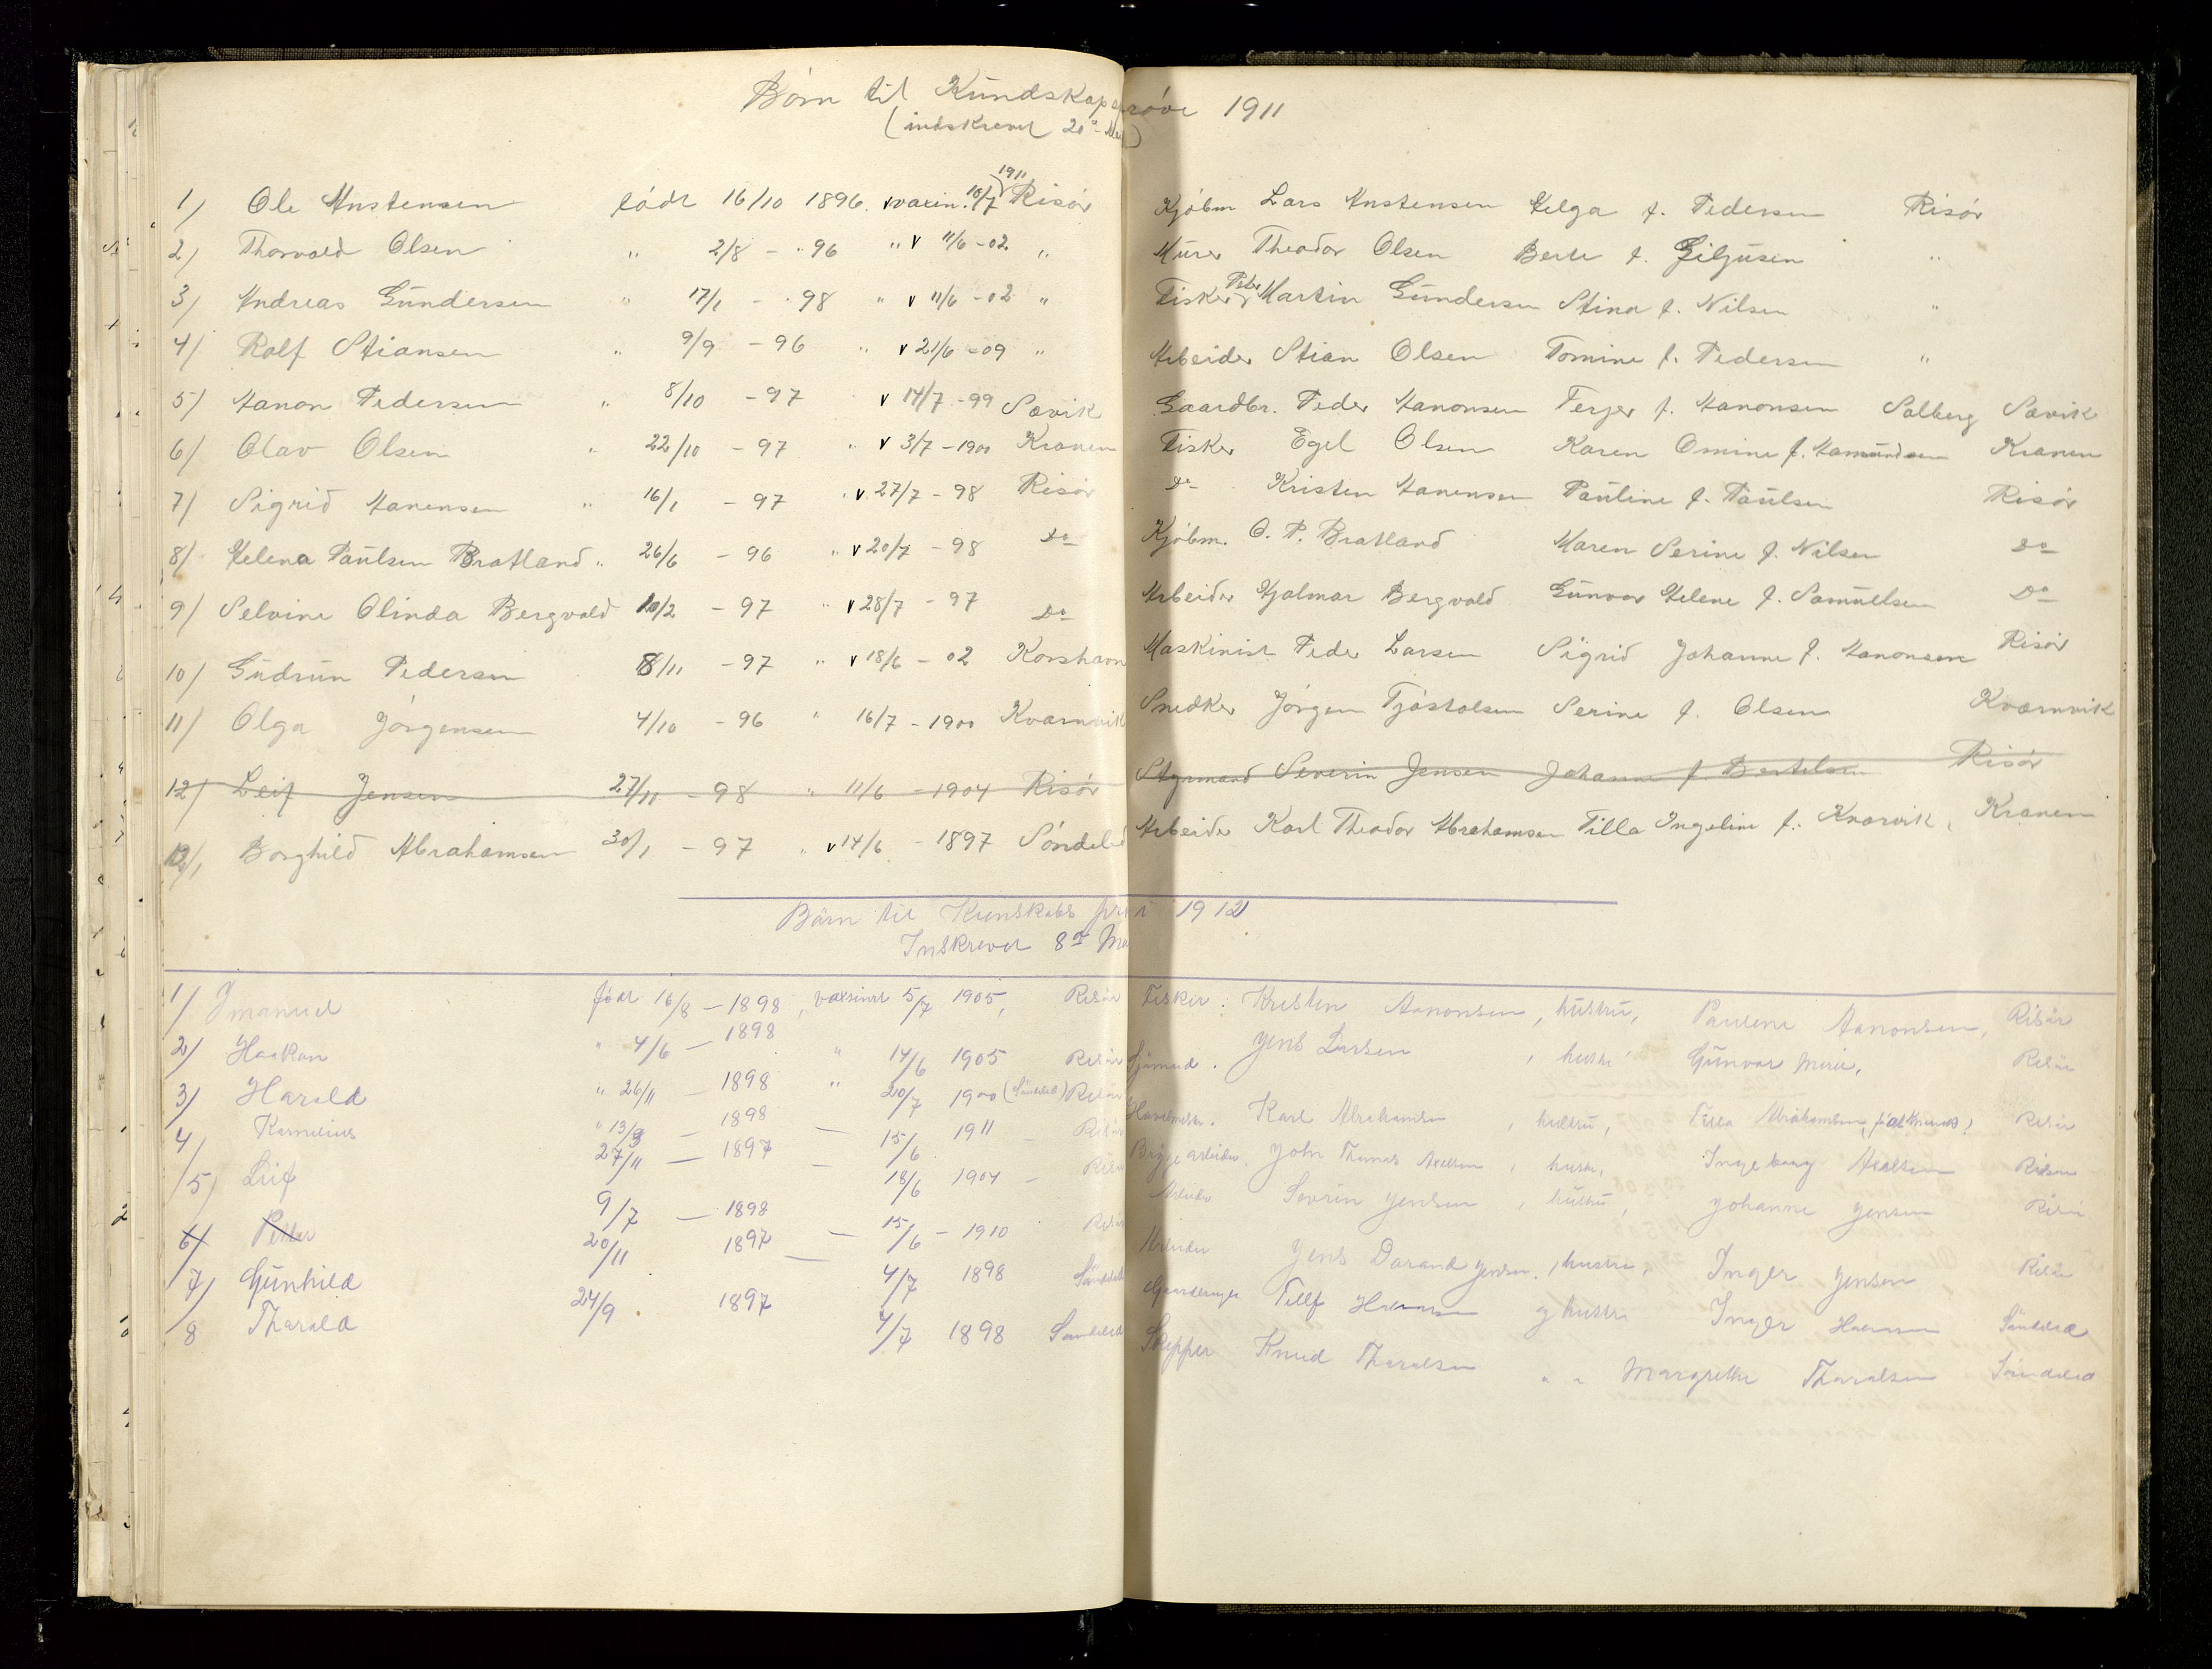 Børn til Kundskapsprøve 1911
(indskrevet 20de Mai)
1/ Ole Anstensen født 16/10 1896. v vaxin. 10/7 1911 Risør Kjøbm Lars Anstensen Helga f. Pedersen Risør
2/ Thorvald Olsen " 2/8 - " 96 " v 11/6 - 02 " Murer Theodor Olsen Berte f. Giljusen "
3/ Andreas Gundersen " 17/1 - " 98 " v 11/6 - 02 " Fisker Peder Martin Gundersen Stina f. Nilsen "
4/ Rolf Stiansen " 9/9 - 96 " v 21/6 - 09 " Arbeider Stian Olsen Tomine f. Pedersen "
5/ Aanon Pedersen " 8/10 - 97 v 14/7 - 99 Sævik Gaardbr. Peder Aanonsen Terjer f. Aanonsen Solberg Sævik
6/ Olav Olsen " 22/10 - 97 " v 3/7 - 1900 Kranen Fisker Egel Olsen Karen Omine f. Aamundsen Kranen
7/ Sigrid Aanensen " 16/1 - 97 " v 27/7 - 98 Risør Do Kristen Aanensen Pauline f. Paulsen Risør
8/ Helena Paulsen Bratland " 26/6 - 96 " v 20/7 - 98 Do Kjøbm. O. P. Bratland Maren Serine f. Nilsen Do
9/ Selvine Olinda Bergvald 10/2 - 97 " v 28/7 - 97 Do Arbeider Hjalmar Bergvald Gunvor Helene f. Samuelsen Do
10/ Gudrun Pedersen 8/11 - 97 " v 18/6 - 02 Korshavn Maskinist Peder Larsen Sigrid Johanne f. Aanonsen Risør
11/ Olga Jørgensen 4/10 - 96 " 16/7 - 1900 Kvarnvik Snedker Jørgen Tjøstolsen Serine f. Olsen Kvarnvik
12/ Leif Jensen 27/11 - 98 " 11/6 - 1904 Risør Styrmand Severin Jensen Johanne f. Bertelsen Risør
12/ Borghild Abrahamsen 30/1 - 97 " v 14/6 - 1897 Søndeled Arbeider Karl Theodor Abrahamsen Tilla Ingeline f. Knarvik, Kranen
Børn til Kunskabs 1912
Inskrevet 8de Mai
1/ Imanuel født 16/8 - 1898, vaxsinert 5/7 1905, Risør Fisker: Kristen Aanonsen, hustru, Pauline Aanonsen, Risør
2/ Haakon " 4/6 - 1898 " 14/6 1905 Risør Sjømand. Jens Larsen, hustru Gunvor Marie, Risør
3/ Harald " 26/11 - 1898 " 20/7 1900 (Søndeled) Risør Karl Abrahamsen, hustru, Tilla Abrahamsen Risør
4/ Kornelius " 13/9 - 1898 - 15/6 1911 - Risør Bryggearbeider John Thomas Axelsen, hustru, Ingeborg Axelsen Risør
5/ Leif 27/11 - 1897 - 18/6 1904 - Risør Arbeider Sevrin Jensen, hustru, Johanne Jensen Risør
6/ Petter 9/7 - 1898 - 15/6 - 1910 Risør Arbeider Jens Dorand Jensen, hustru, Inger Jensen Risør
7/ Gunhild 20/11 1897 - 4/7 1898 Søndeled Tellf g hustru Inger Søndeled
8 Tharald 24/9. 1897 4/7 1898 Søndeled Skipper Knud Tharalsen " " Margrethe Tharalsen Søndeled